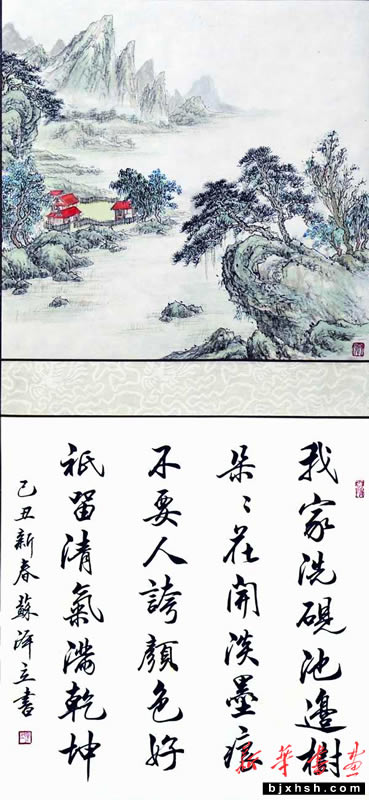 我家洗硯池邊樹
朵〻花開淡墨痕
不要人誇顏色好
祇留清氣滿乾坤
己丑新春蘇泽立書
新華書畫
bjxhsh.com